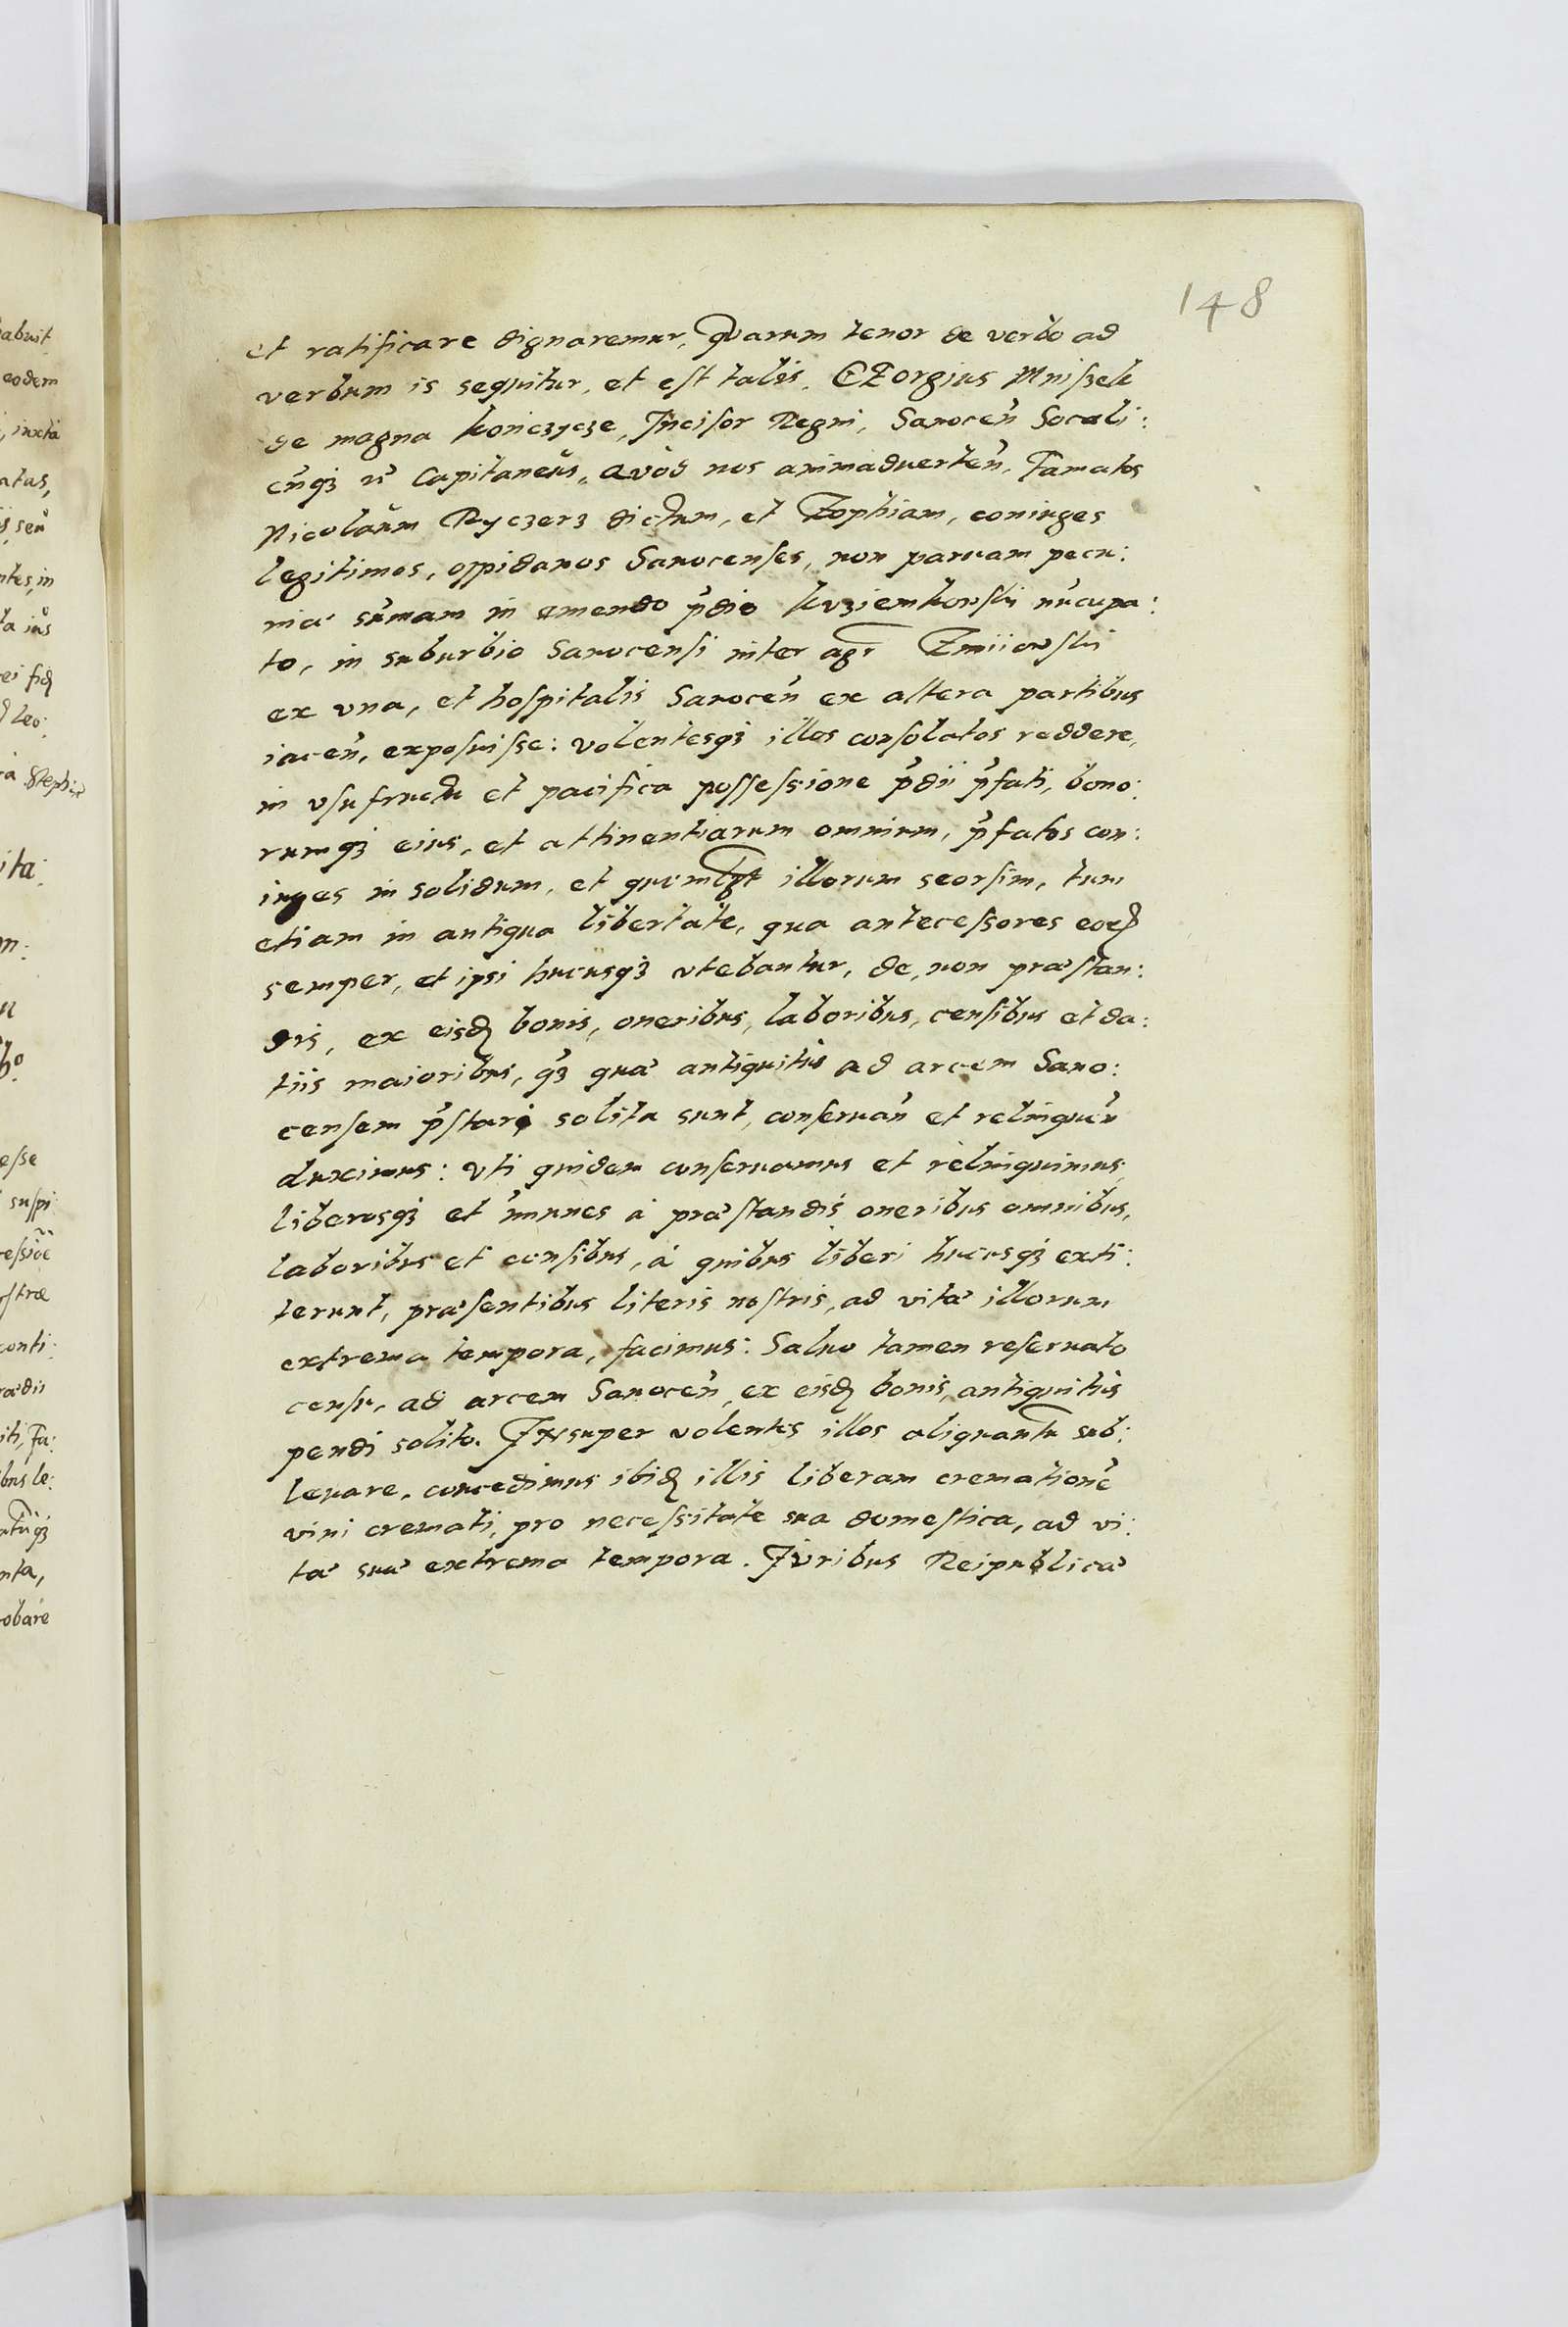 148
et ratificare dignaremur, Quarum tenor de verbo ad
verbum is sequitur, et est talis. GEorgius Mniszek
de magna Koniczycze, Incisor Regni, Sanoceñ Socali:
eñq3 Capitaneus, Quod nos animaduerteñ, Famatos
Nicolaum Ryczerz dictum, et Zophiam, coniuges
legitimos, oppidanos Sanocenses, non paruam pecu:
niæ sum̃am in emendo p̃dio Kuziemkowski nũcupa:
to, in suburbio Sanocensi inter agr Zmiiowski
ex vna, et hospitalis Sanoceñ ex altera partibus
iaceñ, exposuisse: volentesq3 illos consolatos reddere,
in vsufructu et pacifica possessione p̃dii p̃fati, bono:
rumq3 eius, et attinentiarum omnium, p̃fatos con:
iuges in solidum, et illorum seorsim, tum
etiam in antiqua libertate, qua antecessores eorꝝ
semper, et ipsi hucusq3 vtebantur, de non præstan:
dis, ex eisd bonis, oneribus, laboribus, censibus et da:
tiis maioribus, q3 quæ antiquitùs ad arcem Sano:
censem p̃stari solita sunt, conseruañ et relinqueñ
duximus: vti quidem conseruamus et relinquimus,
liberosq3 et im̃unes à præstandis oneribus omnibus,
laboribus et censibus, à quibus liberi hucusq3 exti:
terunt, præsentibus literis nostris, ad vitæ illorum
extrema tempora, facimus: Saluo tamen reseruato
censu, ad arcem Sanoceñ, ex eisd bonis, antiquitùs
pendi solito. INsuper volentes illos aliquantũ sub:
leuare, concedimus ibid illis liberam crematione͂
vini cremati, pro necessitate sua domestica, ad vi:
tæ suæ extrema tempora. IVribus Reipublicæ
abuit
eodem
, iuxta
atus,
seu
ntes, in
ta ius
ei fid
leo:
Stephi
ita:
esse
suspi:
essioe͂
stræ
conti:
rædii
iti, Fa:
ibus le:
nta,
obare